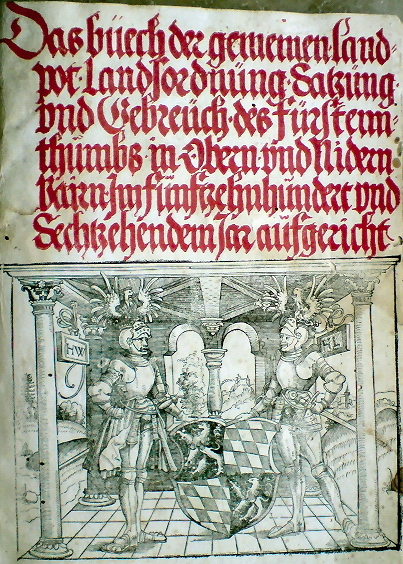 Das büech der gemeinen land=
pot· Landsordnüng· Satzüng·
vnd Gebreüch· des fürstenn=
thümbs in Obern· vnd Nidern
Bairn· Im fünftzehnhündert vnd
Sechtzehendem Jar aufgericht
HW HL